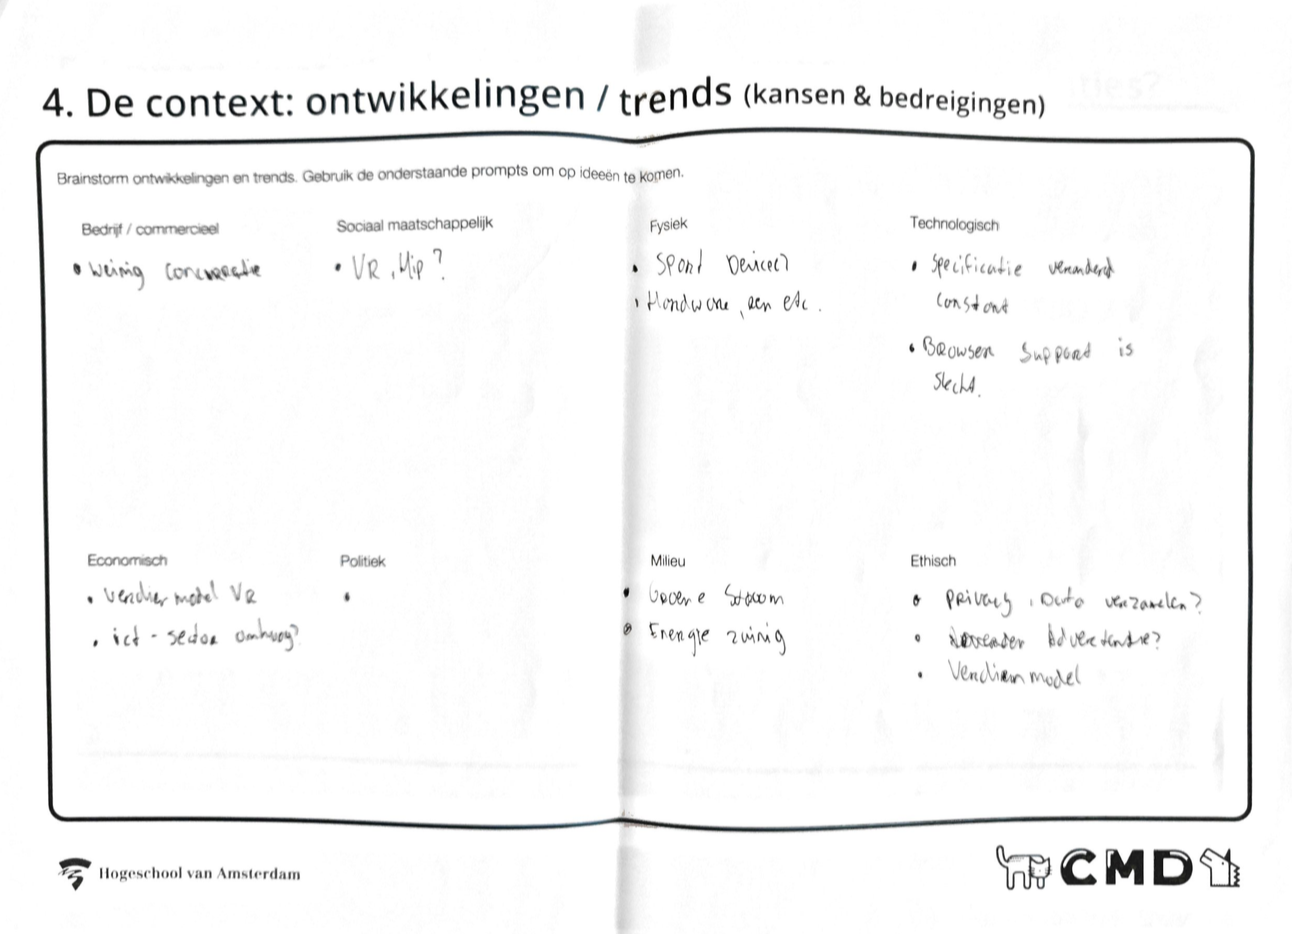 4. De context: ontwikkelingen / trends (kansen & bedreigingen)
Brainstorm ontwikkelingen en trends. Gebruik de onderstaande prompts om op ideeën te komen.
Bedrijf / commercieel
• weinig concurrentie
Sociaal maatschappelijk
• VR, Hip?
Fysiek
• Sport Devices?
• Hardware, een etc.
Technologisch
• Specificatie veranderd
constant
• Browser Support is
slecht.
Economisch
• verdien model VR
• ict - sector omhoog?
Politiek
•
Milieu
• Groene Stroom
• Energie zuinig
Ethisch
• privacy, Data verzamelen?
• Advertentie?
• Verdien model
Hogeschool van Amsterdam
CMD